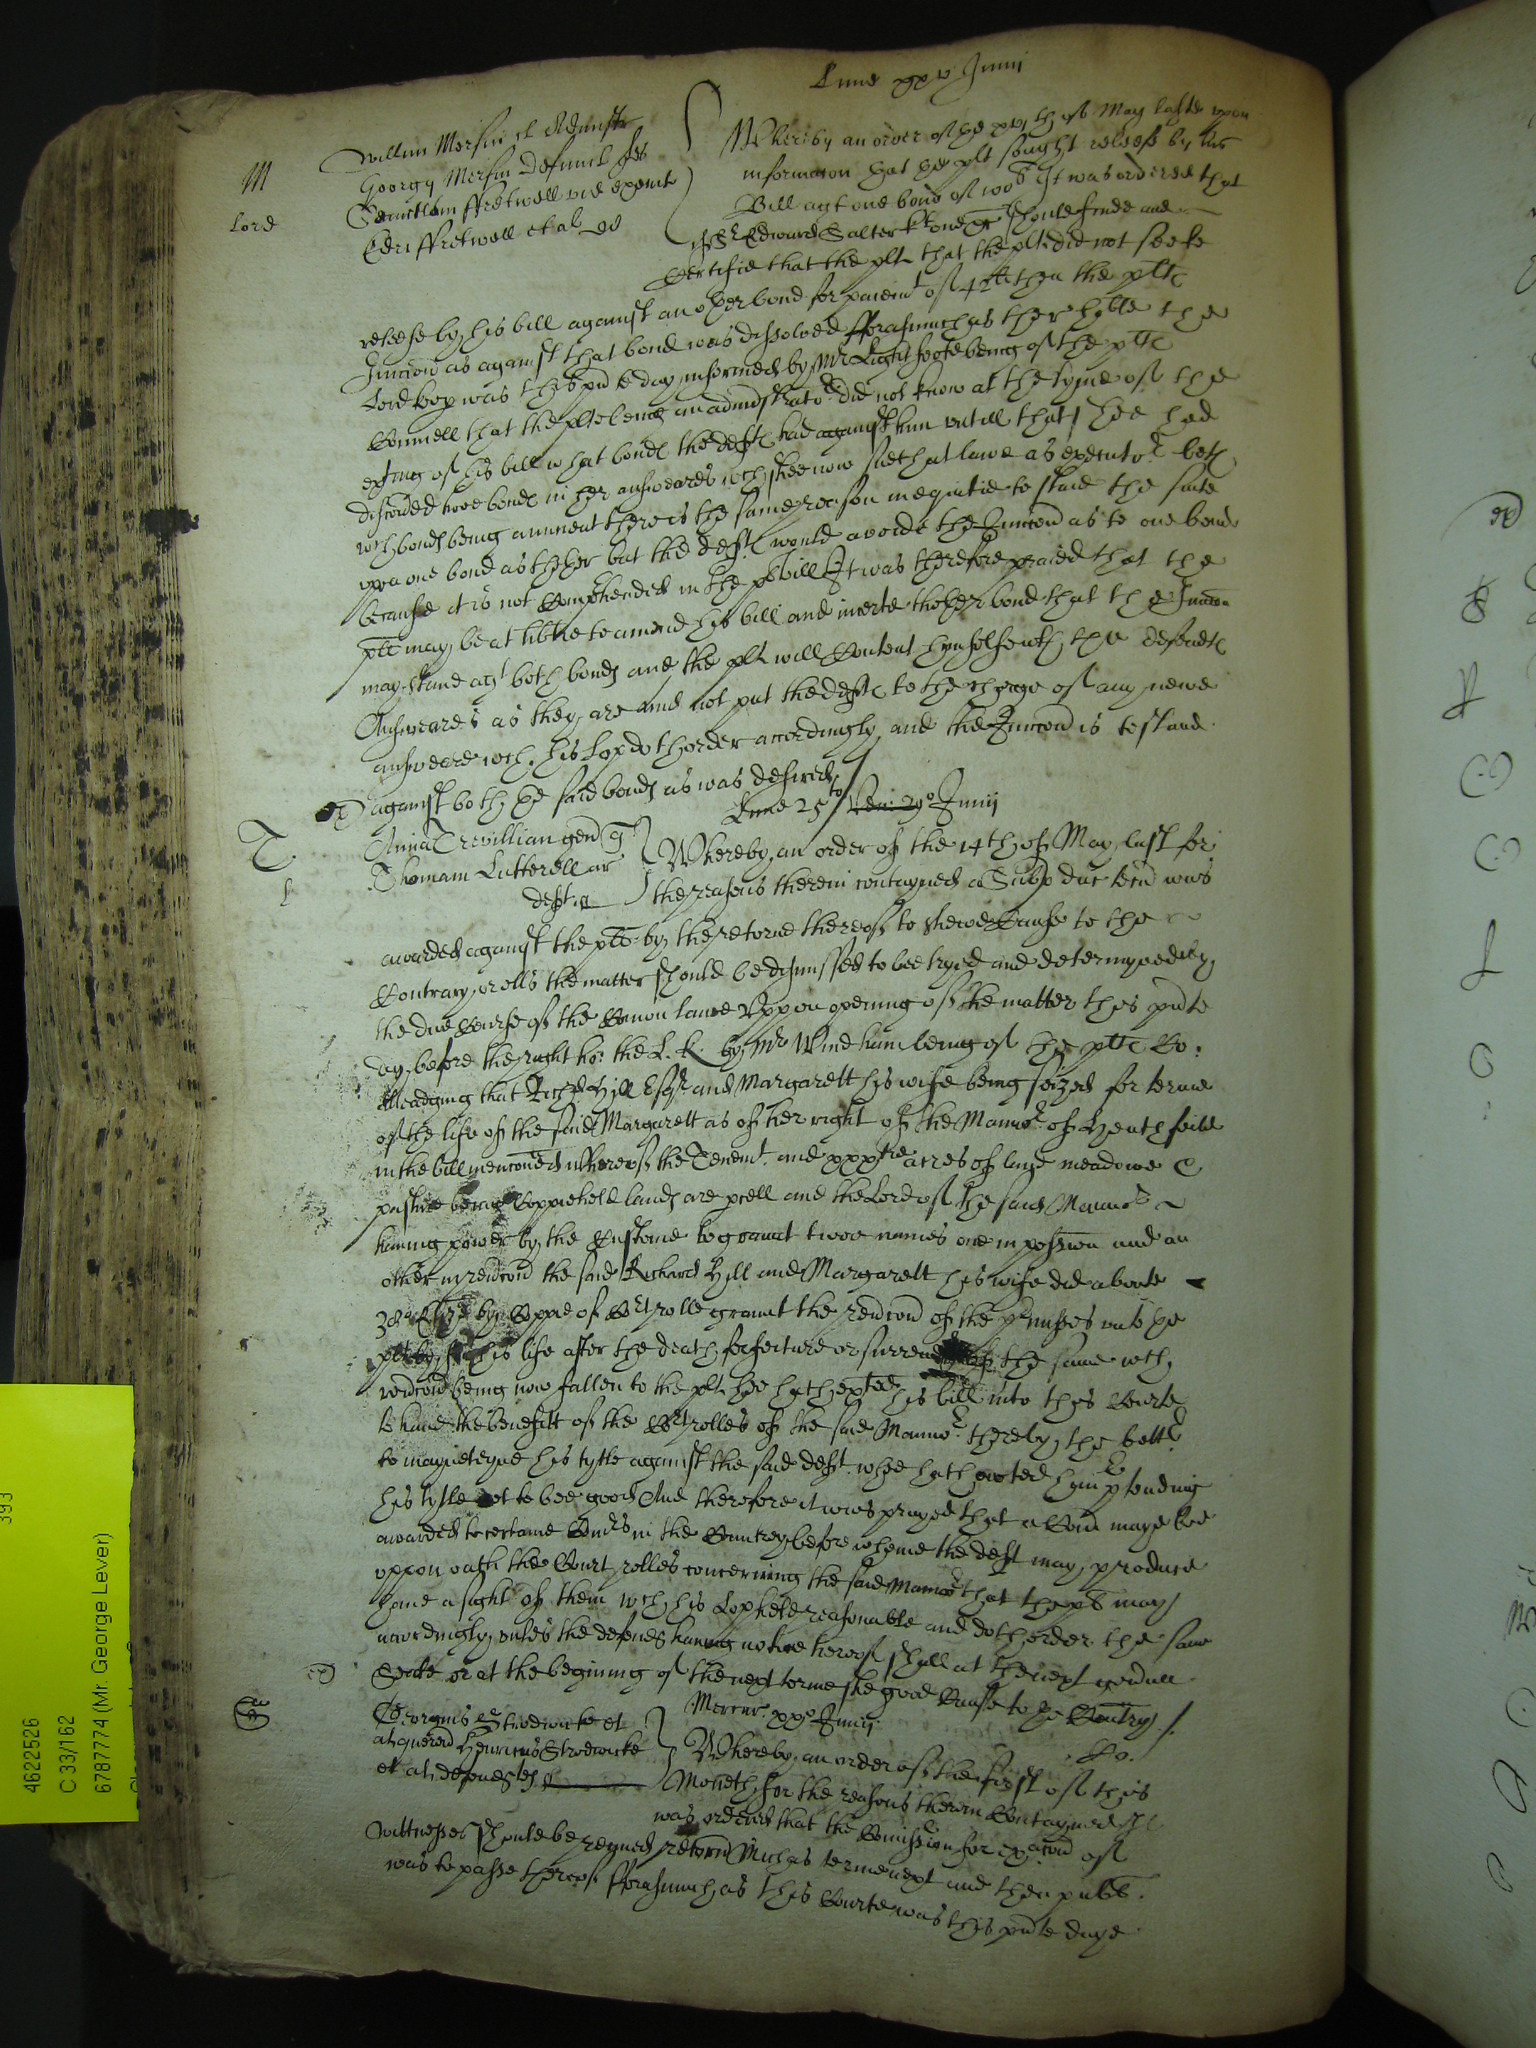 Lune xxv Junii
M
Lord
Willm Mersin et Administr
Georgii Mersin defunct
ffretwell vid execut
Edri ffretwell et al
Whereby an order of ye xvjth of May laste upon
informacon that ye plt sought releefe by his
Bill agt one bond of 100 It was ordered that
Sr Edward Salter kt one shoulde finde and
Certifie that the plt that the plt did not seeke
releefe by his bill against another bond for paiemt of 42li then the plte
Junccon as against that bond was dissolved fforasmuch as the right hble the
Lord keep was this pnte day informed by Mr Lightfoote being of the plte
Counsell that the plte being an administrator did not know at the tyme of the
exhting of his bill what bonds the deft had against him untill that shee had
discovered twoe bonds in her answeares wch shee now sueth at lawe as executor both
wch bonds being auncient there is the same reason in equitie to staie the suite
upon one bond as thother but the deft would avoide the Junccon as to one bond
because it is not Comprehended in the plts bill It was therefore praied that the
plte may be at libtie to amend his bill and inserte thother bond that the Junccon
may stand agt both bonds and the plt will Content hymselfe wth the defendts
Answeares as they are and not put the deft to the charge of any newe
answeare wch his Lop doth order accordingly and the Junccon is to stand
against both ye said bonds as was desired
Lune 25to Junii
T
Trevillian gen q
Thomam Lutterell ar
deft
Whereby an order of the 14th of May last for
the reasons therein contayned a Subp duc tecu was
awarded against the plte by the retorne thereof to shewe Cause to the
Contrary or ells the matter should be dismissed to bee tryed and determyned by
the due Course of the Comon lawe Uppon opening of the matter this pnte
day before the right ho: the L. K. by Mr Windham being of the plte Co:
alleadging that Richd Hill Esqr and Margarett his wife being seized for terme
of the life of the said Margarett as of her right of the Mannor of Heathfeild
in the bill mencioned whereof the Tenemt and xxxtie acres of land meadowe &
pasture being Coppiehold lands are pcell and the Lord of the said Mannor
having power by the Custome to graunt twoe names one in possion and an
other in revcon the said Richard Hill and Margarett his wife did aboute
by Coppie of Cort rolle graunt the revcon of the pmisses unto ye
plt for his life after the death forfeiture or surrender of the same wch
revcon being now fallen to the plt hee hath exhted his bill into this Courte
to have the benefitt of the Cort rolles of the said Mannor thereby the bettr
to mayneteyne his tytle against the said deft whoe hath evicted hym ptending
his tytle not to bee good And therefore it was prayed that a Com maye bee
awarded to certaine Comrs in the Countrey before whome the deft may produce
uppon oath the Court rolles concerning the said Mannor that the plt may
have a sight of them wch his Lop helde reasonable and doth order the same
accordingly unles the defend having notice hereof shall at the next genrall
Seale or at the begining of the next terme she good Cause to ye Contry
Mercur xxo Junii
Georgius Strodwicke et
al quer Henricus Strodwicke
et al defend
Whereby an order of the first of this
Moneth for the reasons therein Contayned It
was ordered that the Comission for exacon of
wittnesses should be renued retorn Michas terme next and then publ
was to passe thereof fforasmuch as this Courte was this pnte daye
393
4622526
C 33/162
6787774 (Mr. George Lever)